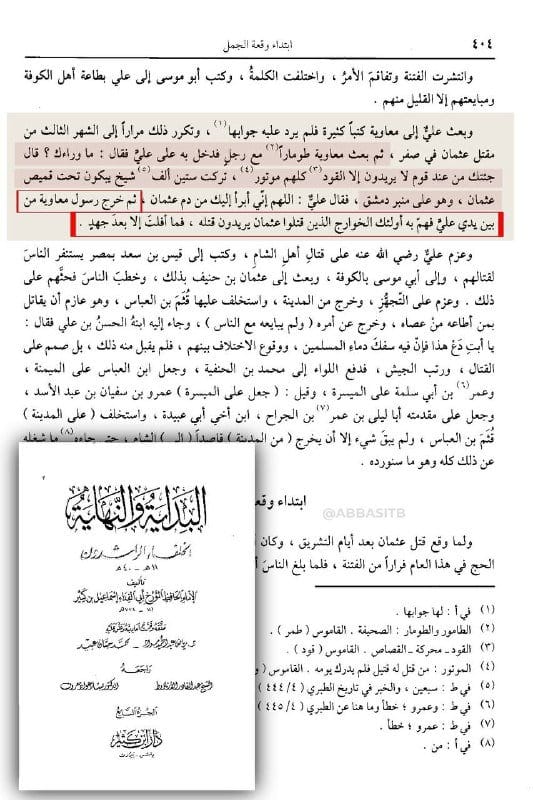 ٤٠٤
ابتداء وقعة الجمل
وانتشرت الفتنة وتفاقمَ الأمرُ ، واختلفت الكلمةُ ، وكتب أبو موسى إلى علي بطاعة أهل الكوفة
ومبايعتهم إلا القليل منهم .
وبعث عليٌّ إلى معاوية كتباً كثيرة فلم يرد عليه جوابها(١) ، وتكرر ذلك مراراً إلى الشهر الثالث من
مقتل عثمان في صفر ، ثم بعث معاوية طوماراً(٢) مع رجلٍ فدخل به على عليٍّ فقال : ما وراءك ؟ قال
جئتك من عند قوم لا يريدون إلا القود(٣) كلهم موتور(٤) ، تركت ستين ألف(٥) شيخ يبكون تحت قميص
عثمان ، وهو على منبر دمشق ، فقال عليٌّ : اللهم إنّي أبرأ إليك من دم عثمان ، ثم خرج رسول معاوية من
بين يدي عليٍّ فهمّ به أولئك الخوارج الذين قتلوا عثمان يريدون قتله ، فما أفلتَ إلا بعدَ جهدٍ .
وعزم عليٌّ رضي الله عنه على قتالِ أهل الشام ، وكتب إلى قيس بن سعد بمصر يستنفر الناسَ
لقتالهم ، وإلى أبي موسى بالكوفة ، وبعث إلى عثمان بن حنيف بذلك ، وخطبَ الناسَ فحثَّهم على
ذلك . وعزم على التّجهُّزِ ، وخرج من المدينة ، واستخلف عليها قُثَمَ بن العباس ، وهو عازم أن يقاتل
بمن أطاعه من عصاه ، وخرج عن أمره ( ولم يبايعه مع الناس ) ، وجاء إليه ابنهُ الحسنُ بن علي فقال :
يا أبتِ دَعْ هذا فإنّ فيه سفكَ دماءِ المسلمين ، ووقوع الاختلاف بينهم ، فلم يقبل منه ذلك ، بل صمم على
القتال ، ورتب الجيش ، فدفع اللواء إلى محمد بن الحنفية ، وجعل ابن العباس على الميمنة ،
وعمر(٦) بن أبي سلمة على الميسرة ، وقيل : ( جعل على الميسرة ) عمرو بن سفيان بن عبد الأسد ،
وجعل على مقدمته أبا ليلى بن عمر(٧) بن الجراح ، ابن أخي أبي عبيدة ، واستخلف ( على المدينة )
قُثَمَ بن العباس ، ولم يبقَ شيء إلا أن يخرج ( من المدينة ) قاصداً ( إلى ) الشام ، حتى جاءه(٨) ما شغله
عن ذلك كله وهو ما سنورده .
ابتداء وقعة
@ABBASITB
ولما وقع قتل عثمان بعد أيام التشريق ، وكان
الحج في هذا العام فراراً من الفتنة ، فلما بلغ الناسَ
(١) في أ : لها جوابها .
(٢) الطامور والطومار : الصحيفة . القاموس ( طمر ) .
(٣) القود - محركة - القصاص . القاموس ( قود ) .
(٤) الموتور : من قتل له قتيل فلم يدرك بدمه . القاموس ( و
(٥) في ط : سبعين ، والخبر في تاريخ الطبري ( ٤ / ٤٤٤ )
(٦) في ط : وعمرو ؛ خطأ وما هنا عن الطبري ( ٤ / ٤٤٥ )
(٧) في ط : عمرو ؛ خطأ .
(٨) في أ : من .
البداية والنهاية
الخلفاء الراشدون
١١ هـ - ٤٠ هـ
تأليف
الإمام الحافظ المؤرخ أبي الفداء إسماعيل بن كثير
راجعه
الشيخ عبد القادر الأرناؤوط
الدكتور بشار عواد معروف
الجزء السابع
دار ابن كثير